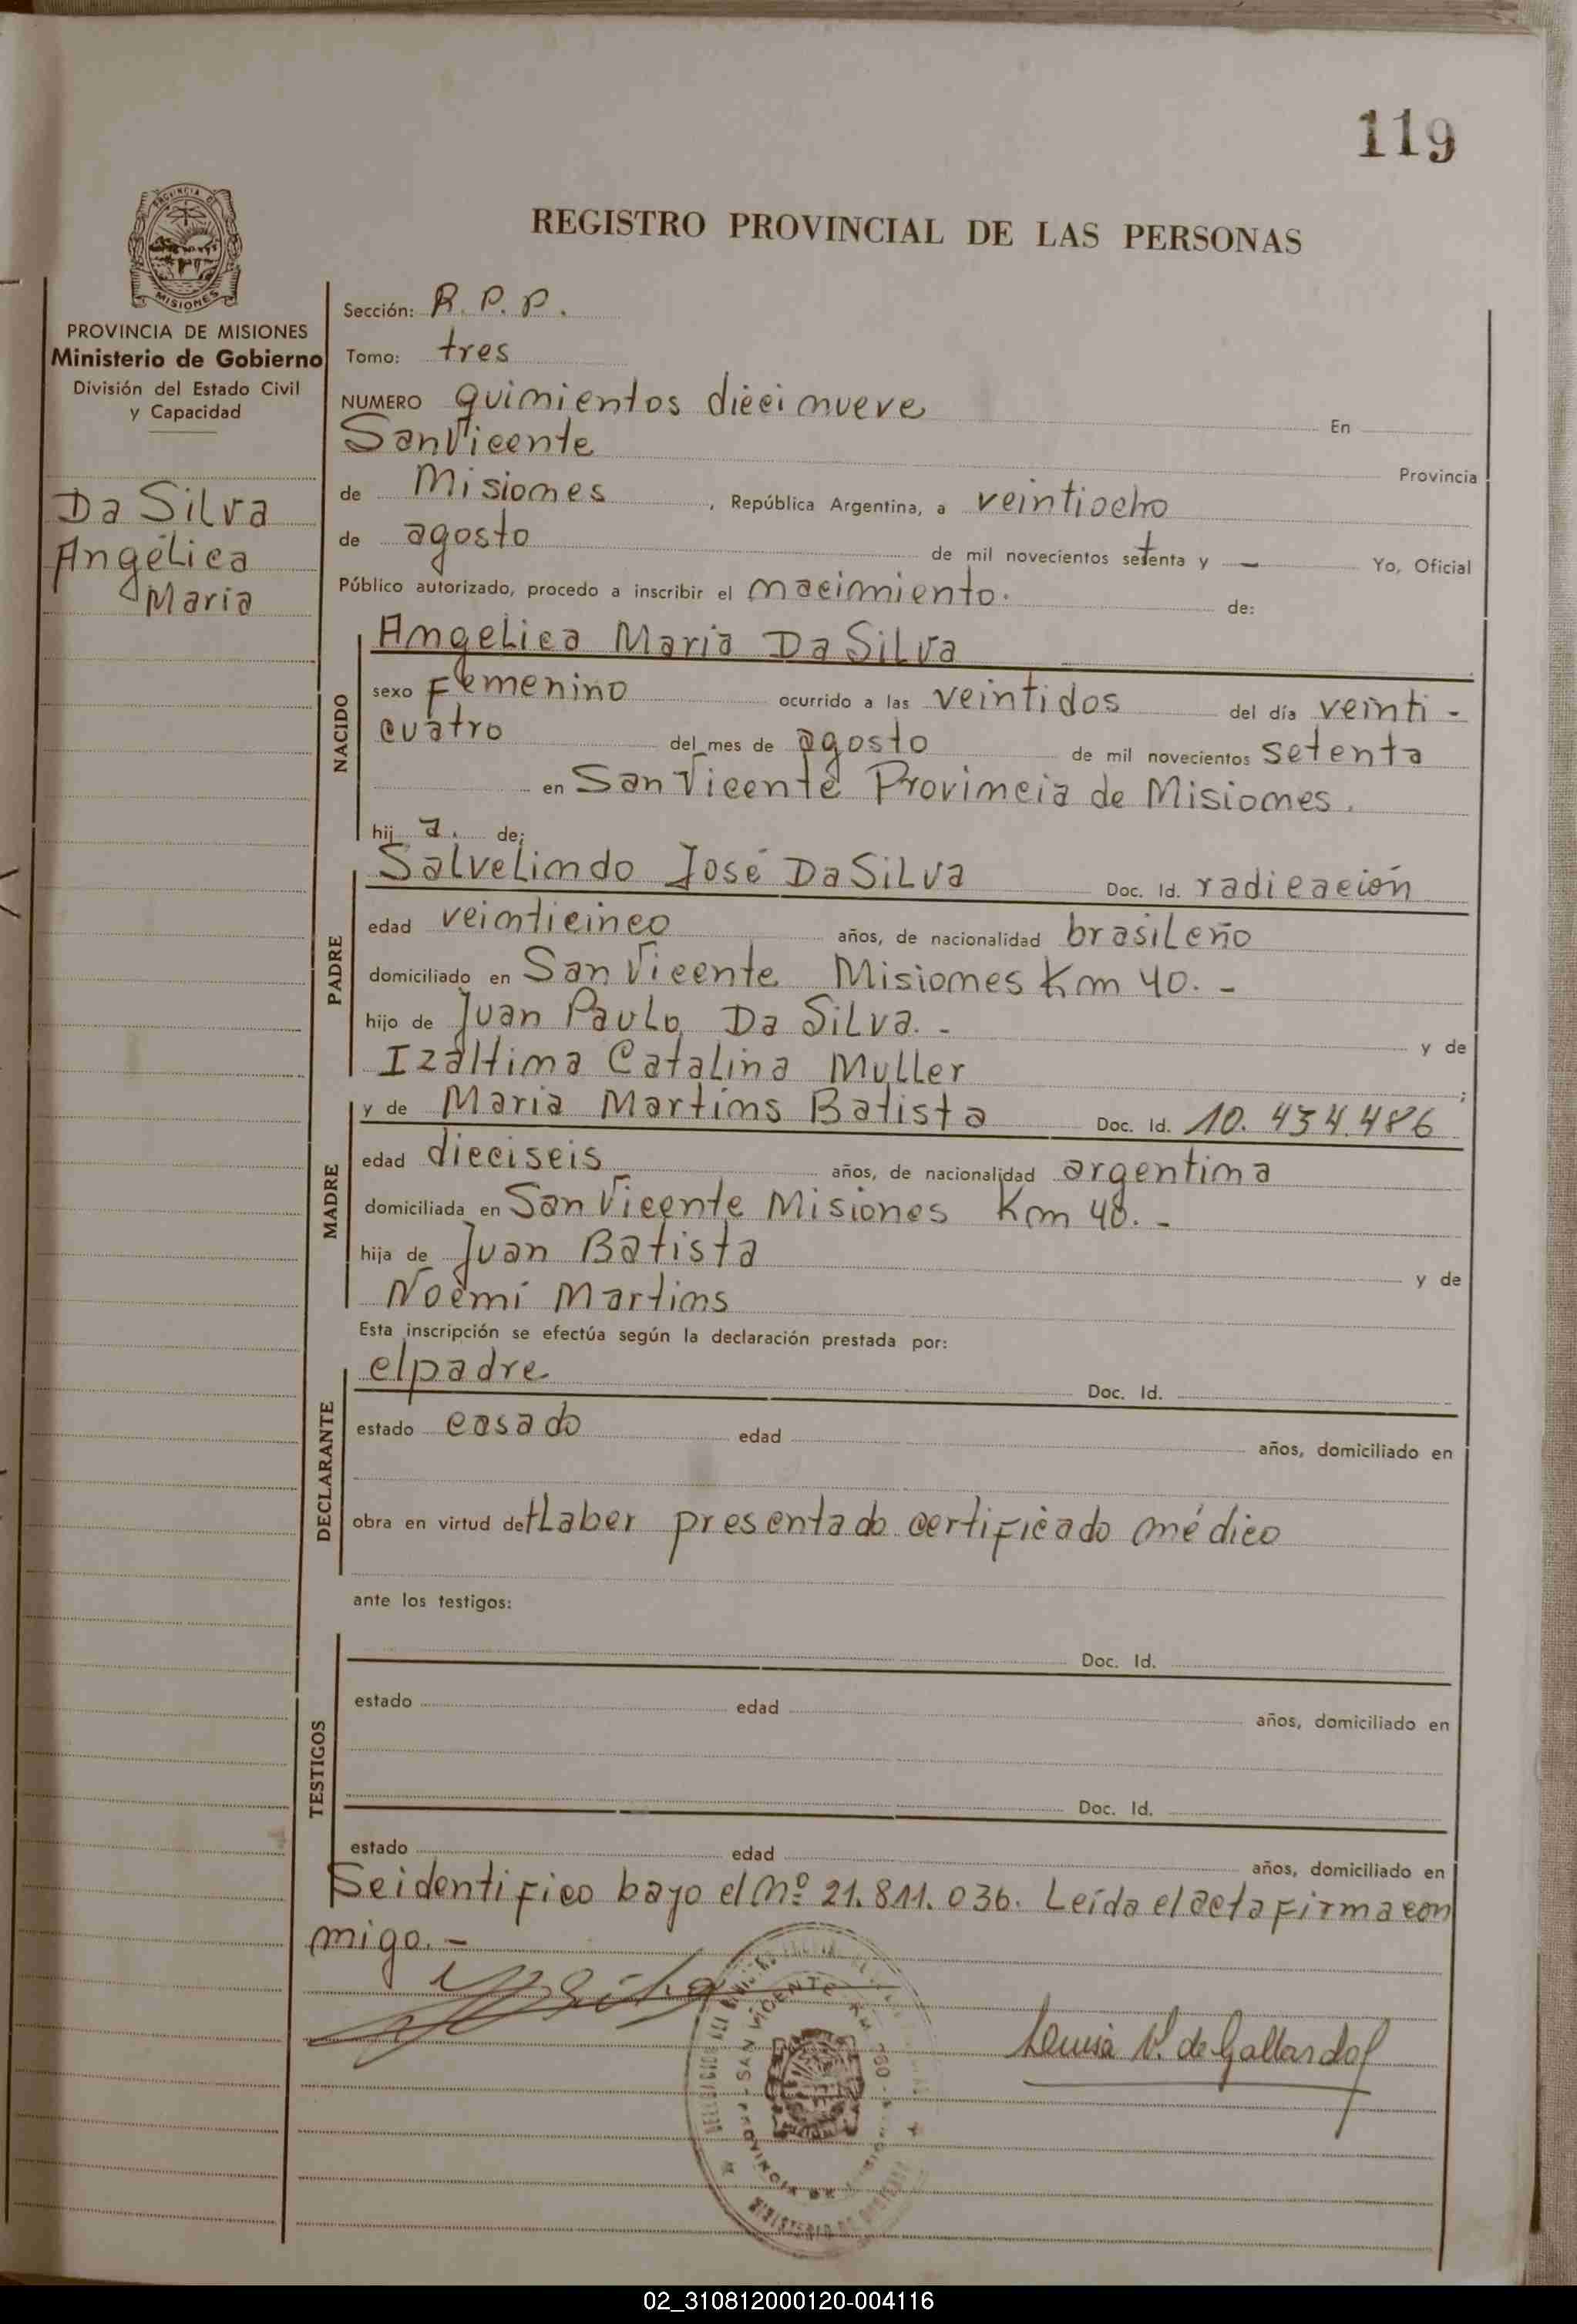 119
REGISTRO PROVINCIAL DE LAS PERSONAS
PROVINCIA DE MISIONES
Ministerio de Gobierno
División del Estado Civil
y Capacidad
Da Silva
Angélica
Maria
Sección: R. P. P.
Tomo: tres
NUMERO quinientos diecinueve En
San Vicente Provincia
de Misiones, República Argentina, a veintiocho
de agosto de mil novecientos setenta y — Yo, Oficial
Público autorizado, procedo a inscribir el nacimiento. de:
NACIDO
Angelica Maria Da Silva
sexo Femenino ocurrido a las veintidos del día veinti-
cuatro del mes de agosto de mil novecientos setenta
en San Vicente Provincia de Misiones.
hij a. de:
PADRE
Salvelindo José Da Silva Doc. Id. radicación
edad veinticinco años, de nacionalidad brasileño
domiciliado en San Vicente Misiones Km 40. -
hijo de Juan Paulo Da Silva. - y de
Izaltina Catalina Muller ;
MADRE
y de Maria Martins Batista Doc. Id. 10.434.486
edad dieciseis años, de nacionalidad argentina
domiciliada en San Vicente Misiones Km 40. -
hija de Juan Batista y de
Noemí Martins
Esta inscripción se efectúa según la declaración prestada por:
DECLARANTE
el padre Doc. Id.
estado casado edad años, domiciliado en
obra en virtud de Haber presentado certificado médico
ante los testigos:
TESTIGOS
Doc. Id.
estado edad años, domiciliado en
Doc. Id.
estado edad años, domiciliado en
Se identifico bajo el Nº 21.811.036. Leída el acta firma con
migo. -
SAN VICENTE
PROVINCIA DE
V. de Gallardo
02_310812000120-004116